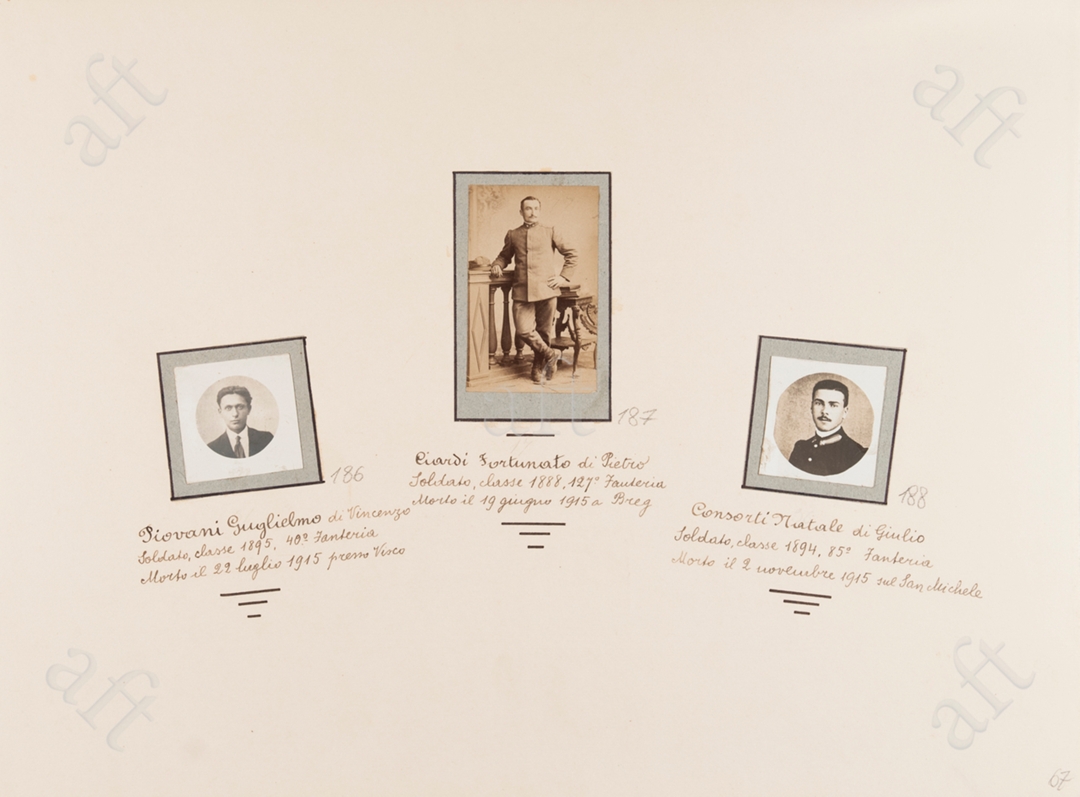 aft
aft
187
Ciardi Fortunato di Pietro
Soldato, classe 1888, 127º Fanteria
Morto il 19 giugno 1915 a Breg
186
Piovani Guglielmo di Vincenzo
Soldato, classe 1895, 40º Fanteria
Morto il 22 luglio 1915 presso Visco
188
Consorti Natale di Giulio
Soldato, classe 1894, 85º Fanteria
Morto il 2 novembre 1915 sul San Michele
aft
aft
67